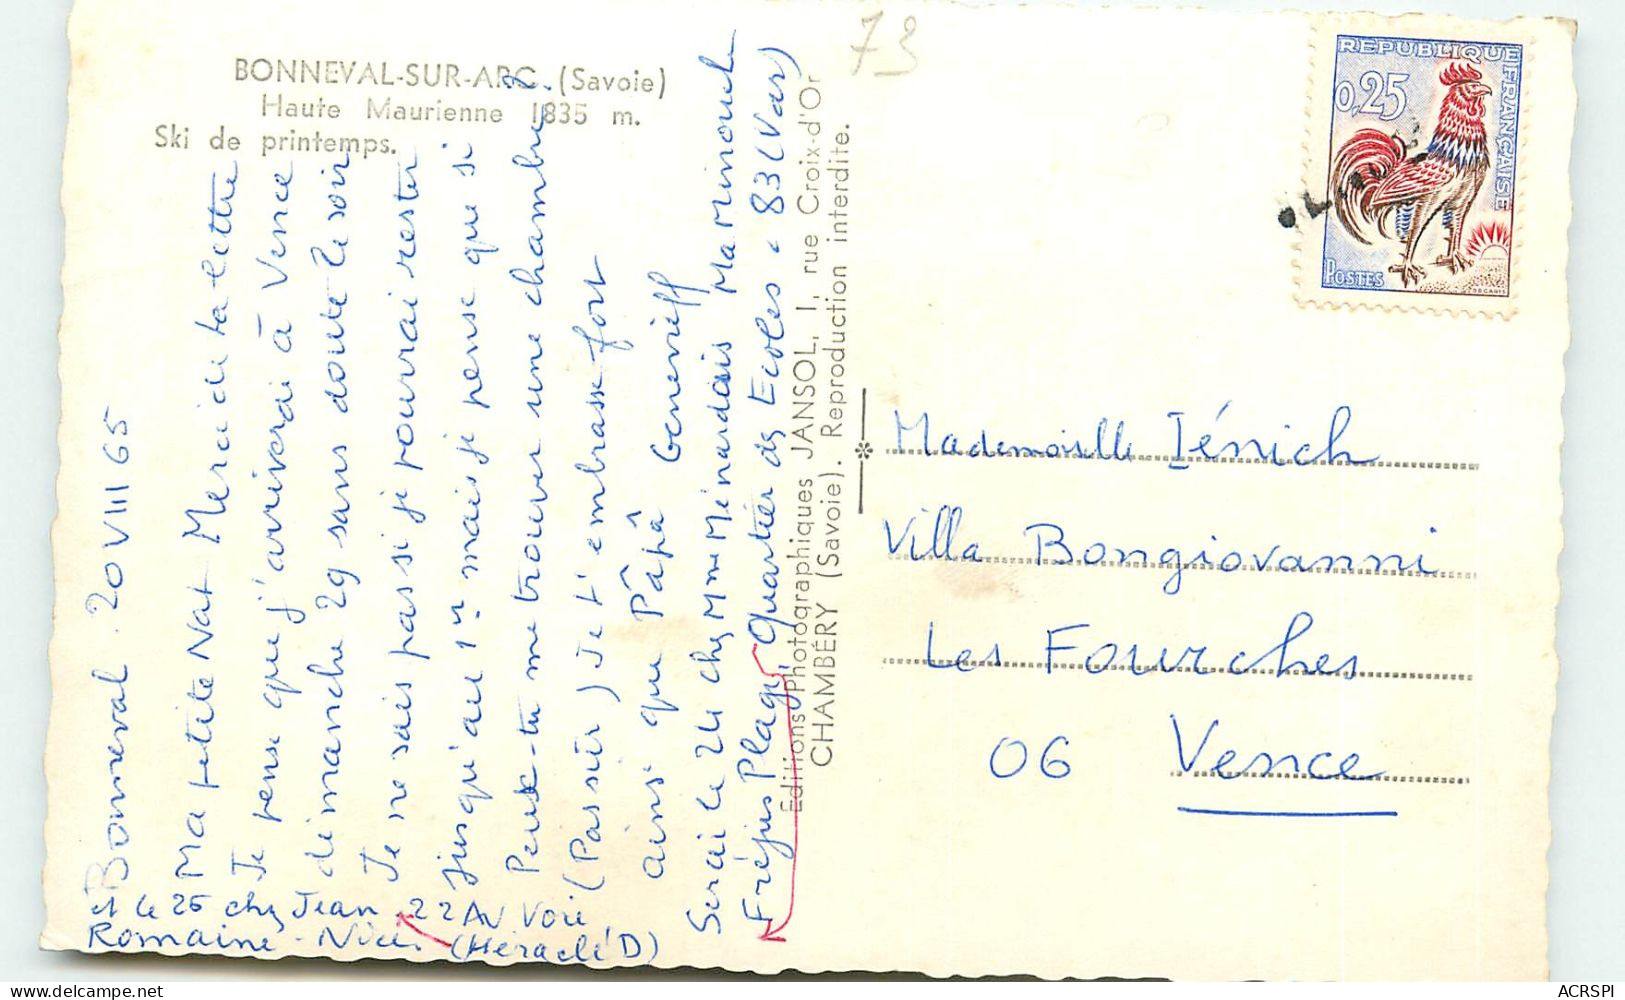 BONNEVAL-SUR-ARC. (Savoie)
Haute Maurienne 1835 m.
Ski de printemps.
73
Bonneval. 20 VIII 65
Ma petite Nat Merci de ta lettre
Je pense que j'arriverai à Vence
dimanche 29 sans doute le soir
Je ne sais pas si je pourrai rester
jusqu'au 1er mais je pense que si
Peux-tu me trouver une chambre ?
(Passur) Je t'embrasse fort
ainsi que Pâpâ Genevieff
Serai le 24 chez Mme Ménardais Ma Minouche
Fréjus Plage, Quartier des Ecoles. 83 (Var)
et le 25 chez Jean 22 Av Voie
Romaine - Nice. (Héraclé D)
Editions Photographiques JANSOL, 1, rue Croix-d'Or
CHAMBÉRY (Savoie). Reproduction interdite.
REPUBLIQUE FRANÇAISE
0,25
POSTES
DECARIS
Mademoiselle Iénich
Villa Bongiovanni
Les Fourches
06 Vence
ACRSPI